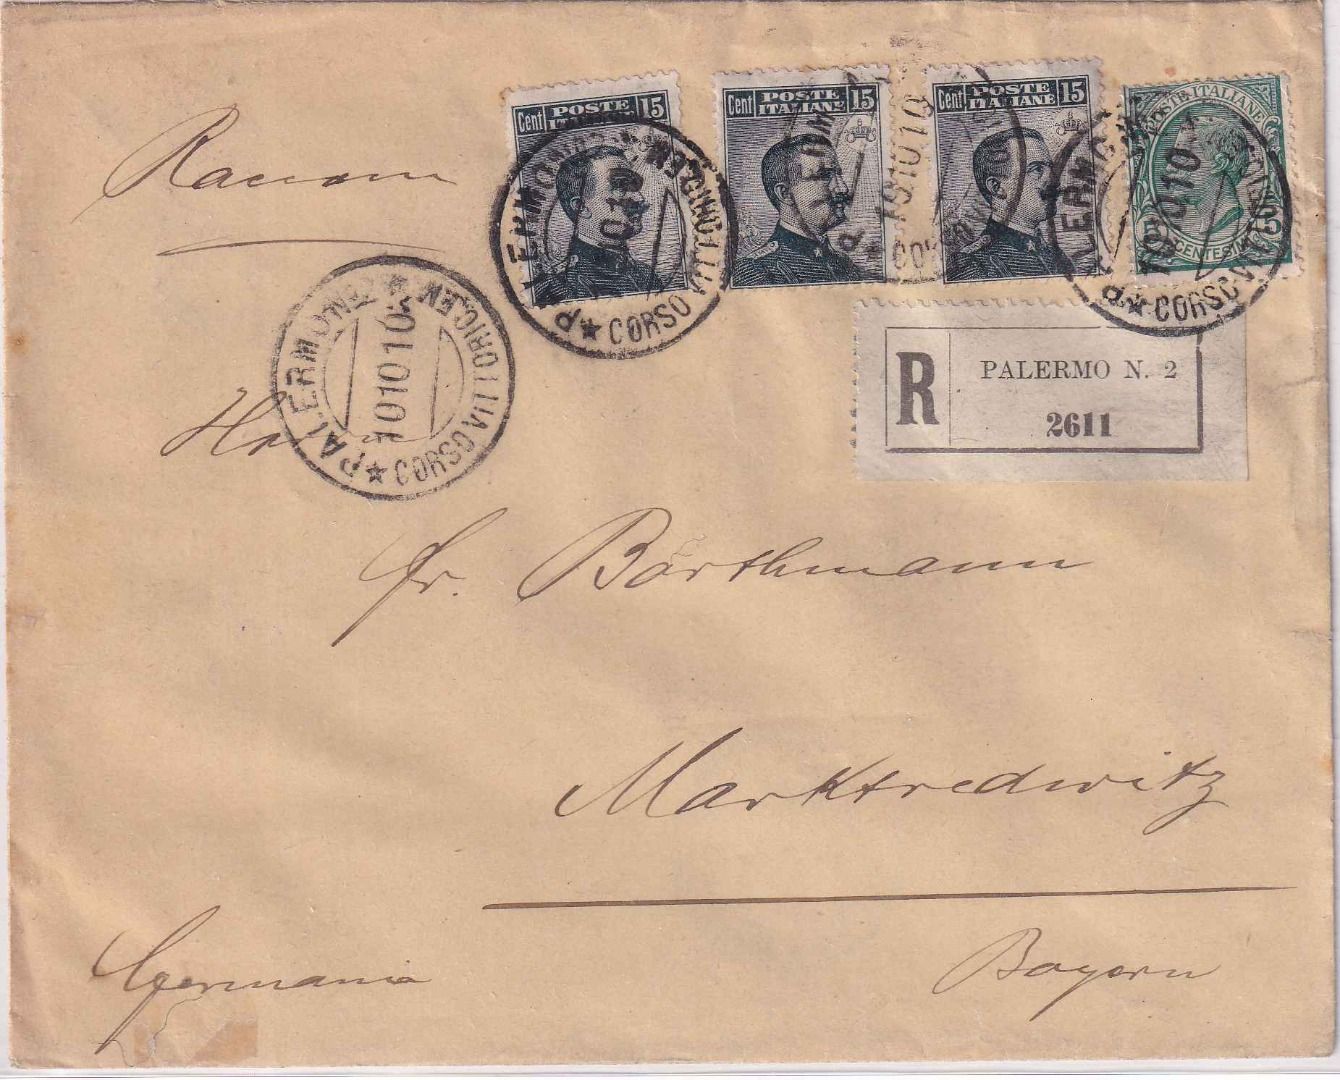 Cent POSTE ITALIANE 15
Cent POSTE ITALIANE 15
Cent POSTE ITALIANE 15
POSTE ITALIANE
CENTESIMI 5
Raccom
PALERMO N. 2 ★ CORSO VITTORIO EM
10 10 10
R
PALERMO N. 2
2611
Hrn
Fr. Börthmann
Marktredwitz
Germania
Bayern